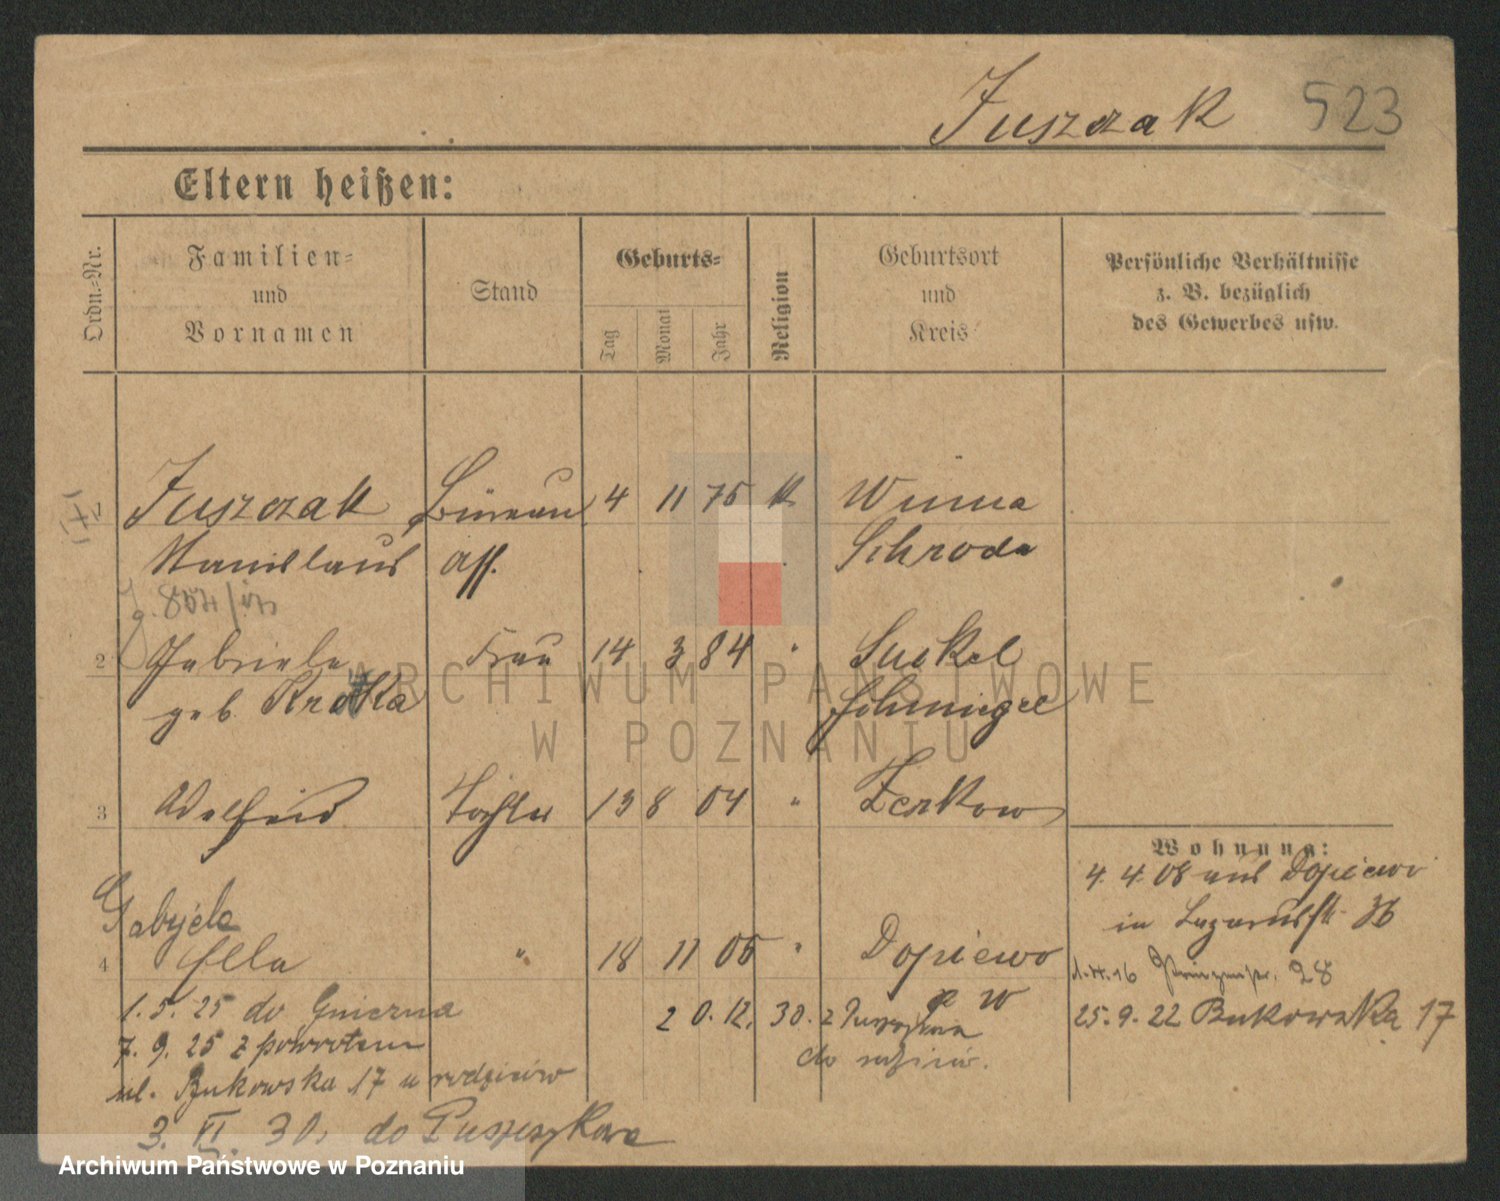 Juszczak 523
Eltern heißen:
Ordn.-Nr.
Familien-
und
Vornamen
Stand
Geburts-
Tag
Monat
Jahr
Religion
Geburtsort
und
Kreis
Persönliche Verhältnisse
z. B. bezüglich
des Gewerbes usw.
1 Juszczak Büreau 4 11 75 k Winna
Stanislaus Ass. Schroda
2 Gabriele Frau 14 3 84 "
geb. Kratka Schmiegel
3 Tochter 13 8 04 " Zerkow
Wohnung:
4. 4. 08 aus Dopiewo
in Lazarusstr. 36
Gabryela
4 Ella " 18 11 05 " Dopiewo
1.4.16 Prinzenstr. 28
1. 5. 25 do Gniezna
2 0. 12. 30. z
25. 9. 22 Bukowska 17
7. 9. 25 z powrotem
do rodziców.
ul. Bukowska 17 u rodziców
3. VI. 30. do Puszczykowa
ARCHIWUM PAŃSTWOWE
W POZNANIU
Archiwum Państwowe w Poznaniu